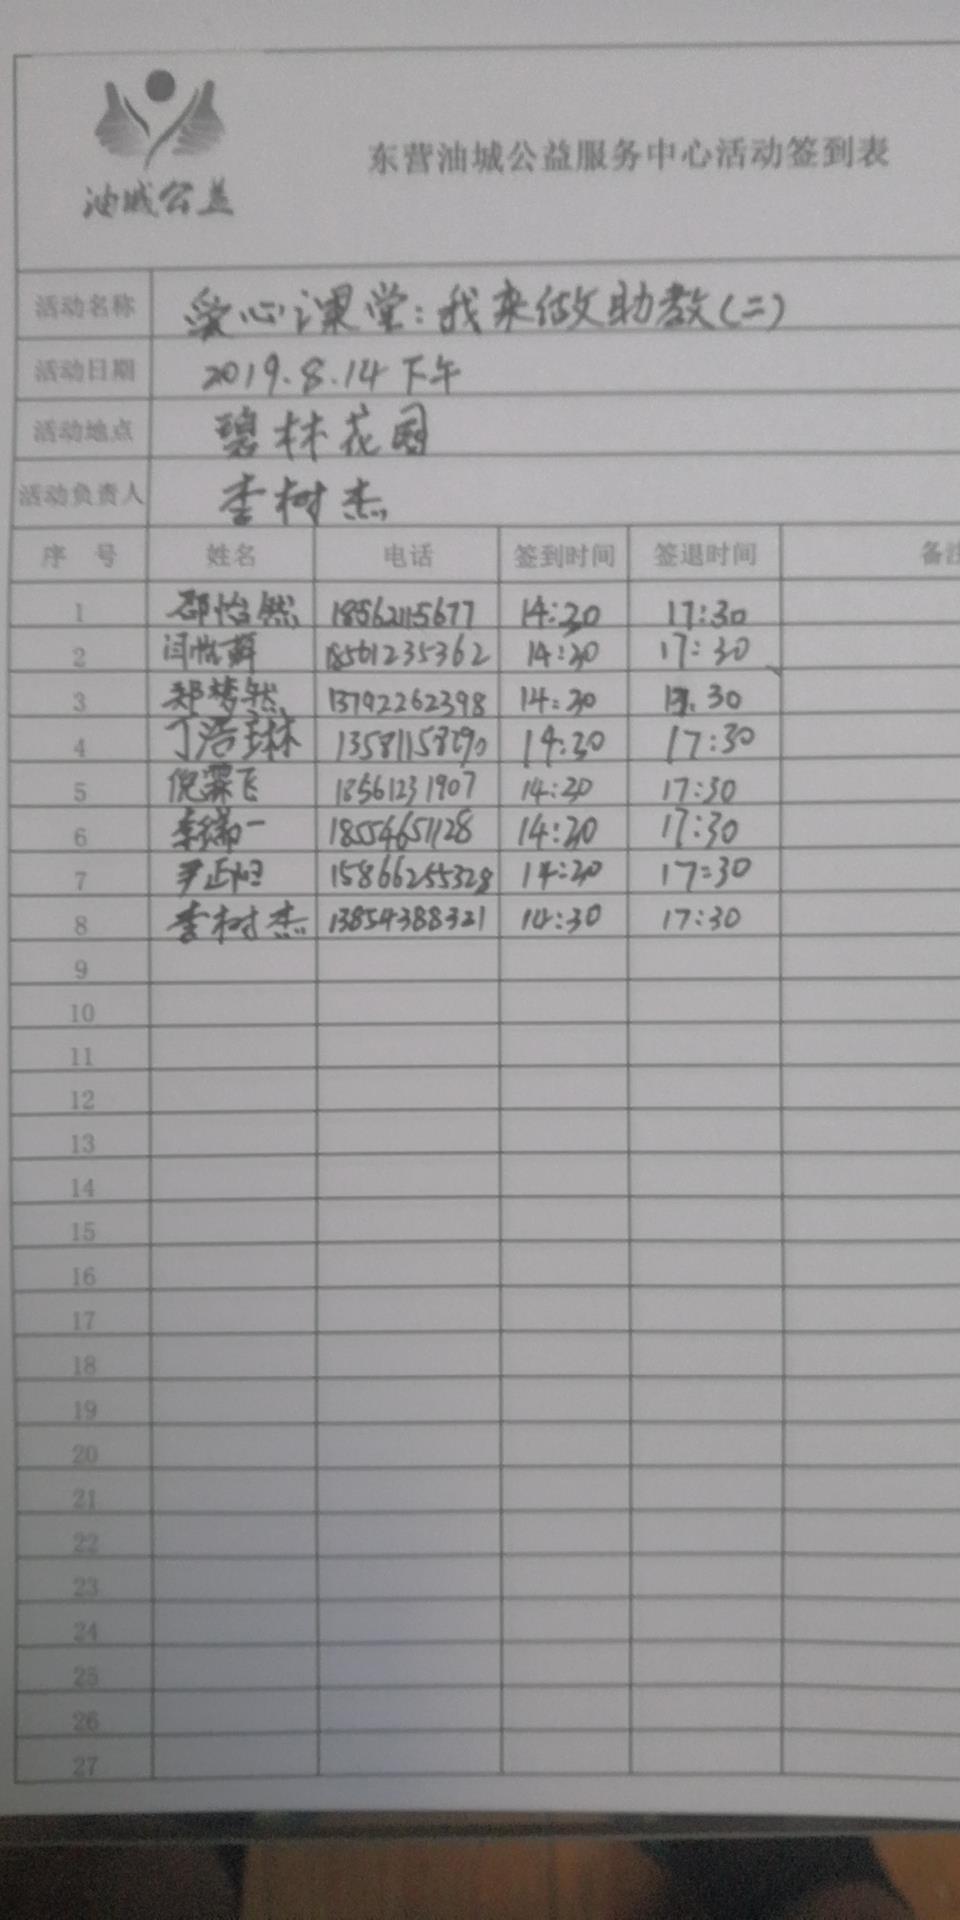 油城公益
东营油城公益服务中心活动签到表
活动名称 爱心课堂：我来做助教(二)
活动日期 2019.8.14下午
活动地点 碧林花园
活动负责人 李树杰
序 号 姓名 电话 签到时间 签退时间 备注
1 邵怡然 18562115677 14:30 17:30
2 18561235362 14:30 17:30
3 郑梦然 13792262398 14:30 17:30
4 丁浩琳 14:30 17:30
5 倪霖飞 18561231907 14:30 17:30
6 李瑞一 18554651128 14:30 17:30
7 尹正恒 15866255328 14:30 17:30
8 李树杰 13854388321 14:30 17:30
9
10
11
12
13
14
15
16
17
18
19
20
21
22
23
24
25
26
27